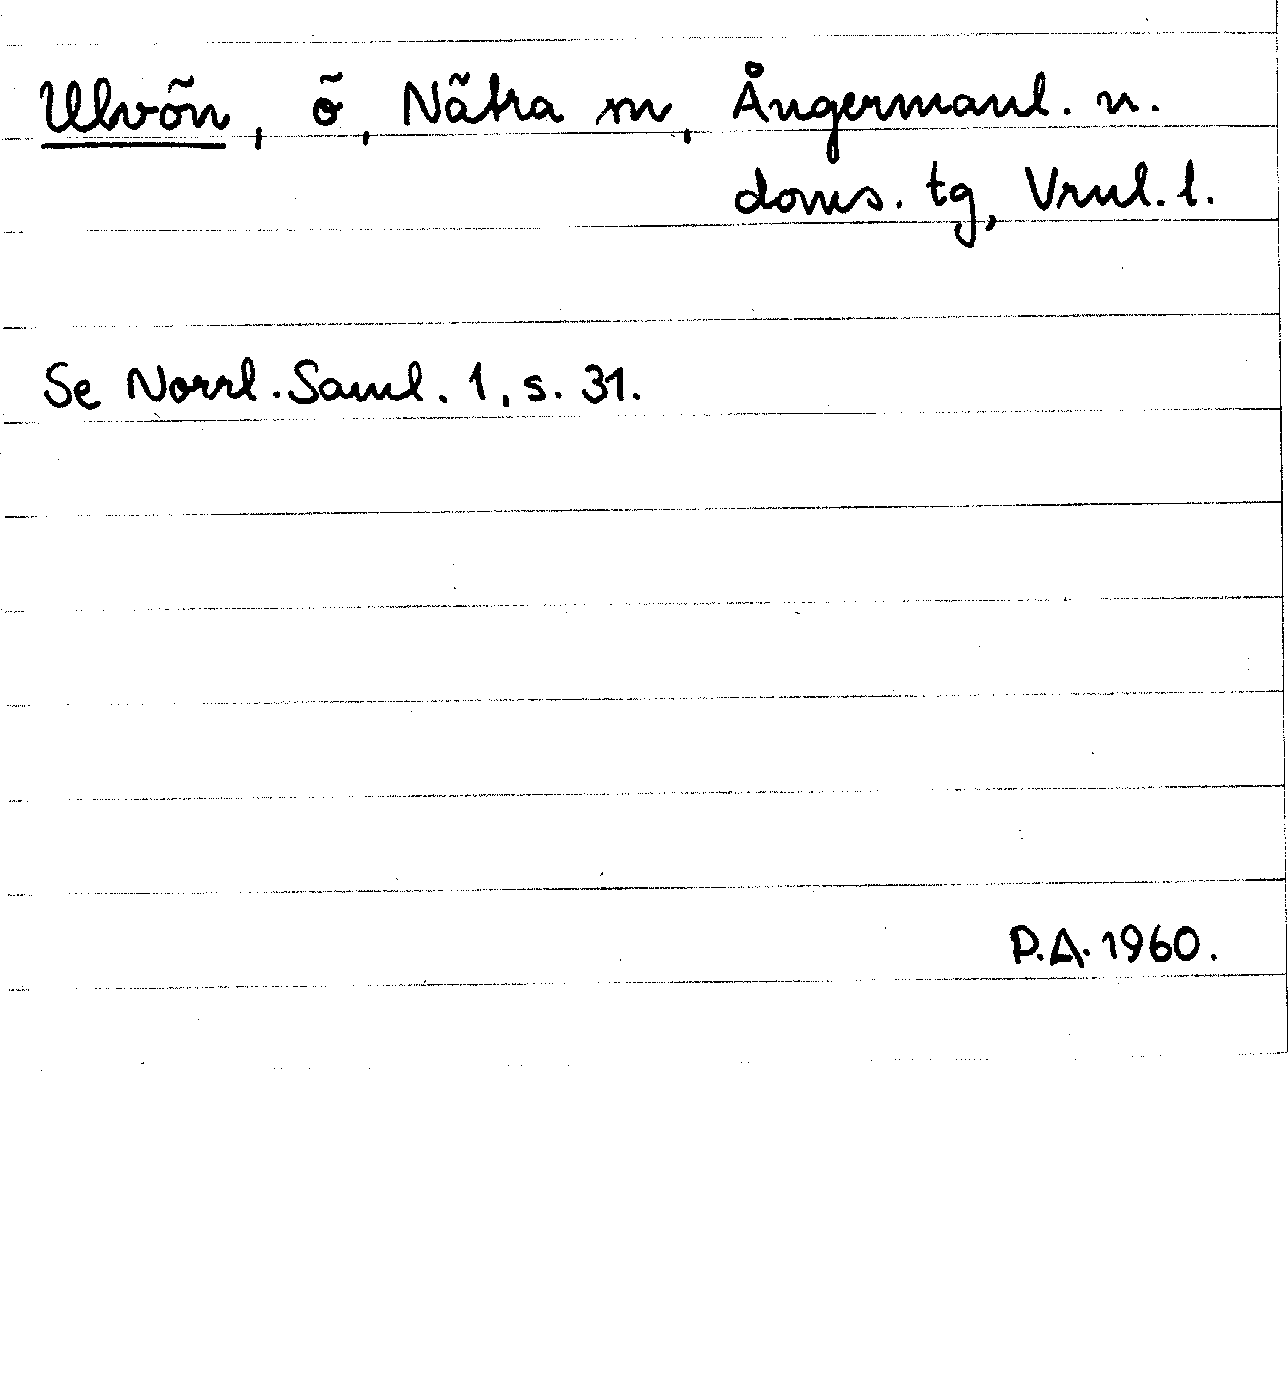 Ulvön, ö, Nätra sn, Ångermanl. n.
doms. tg, Vrnl. l.
Se Norrl. Saml. 1, s. 31.
P.A. 1960.